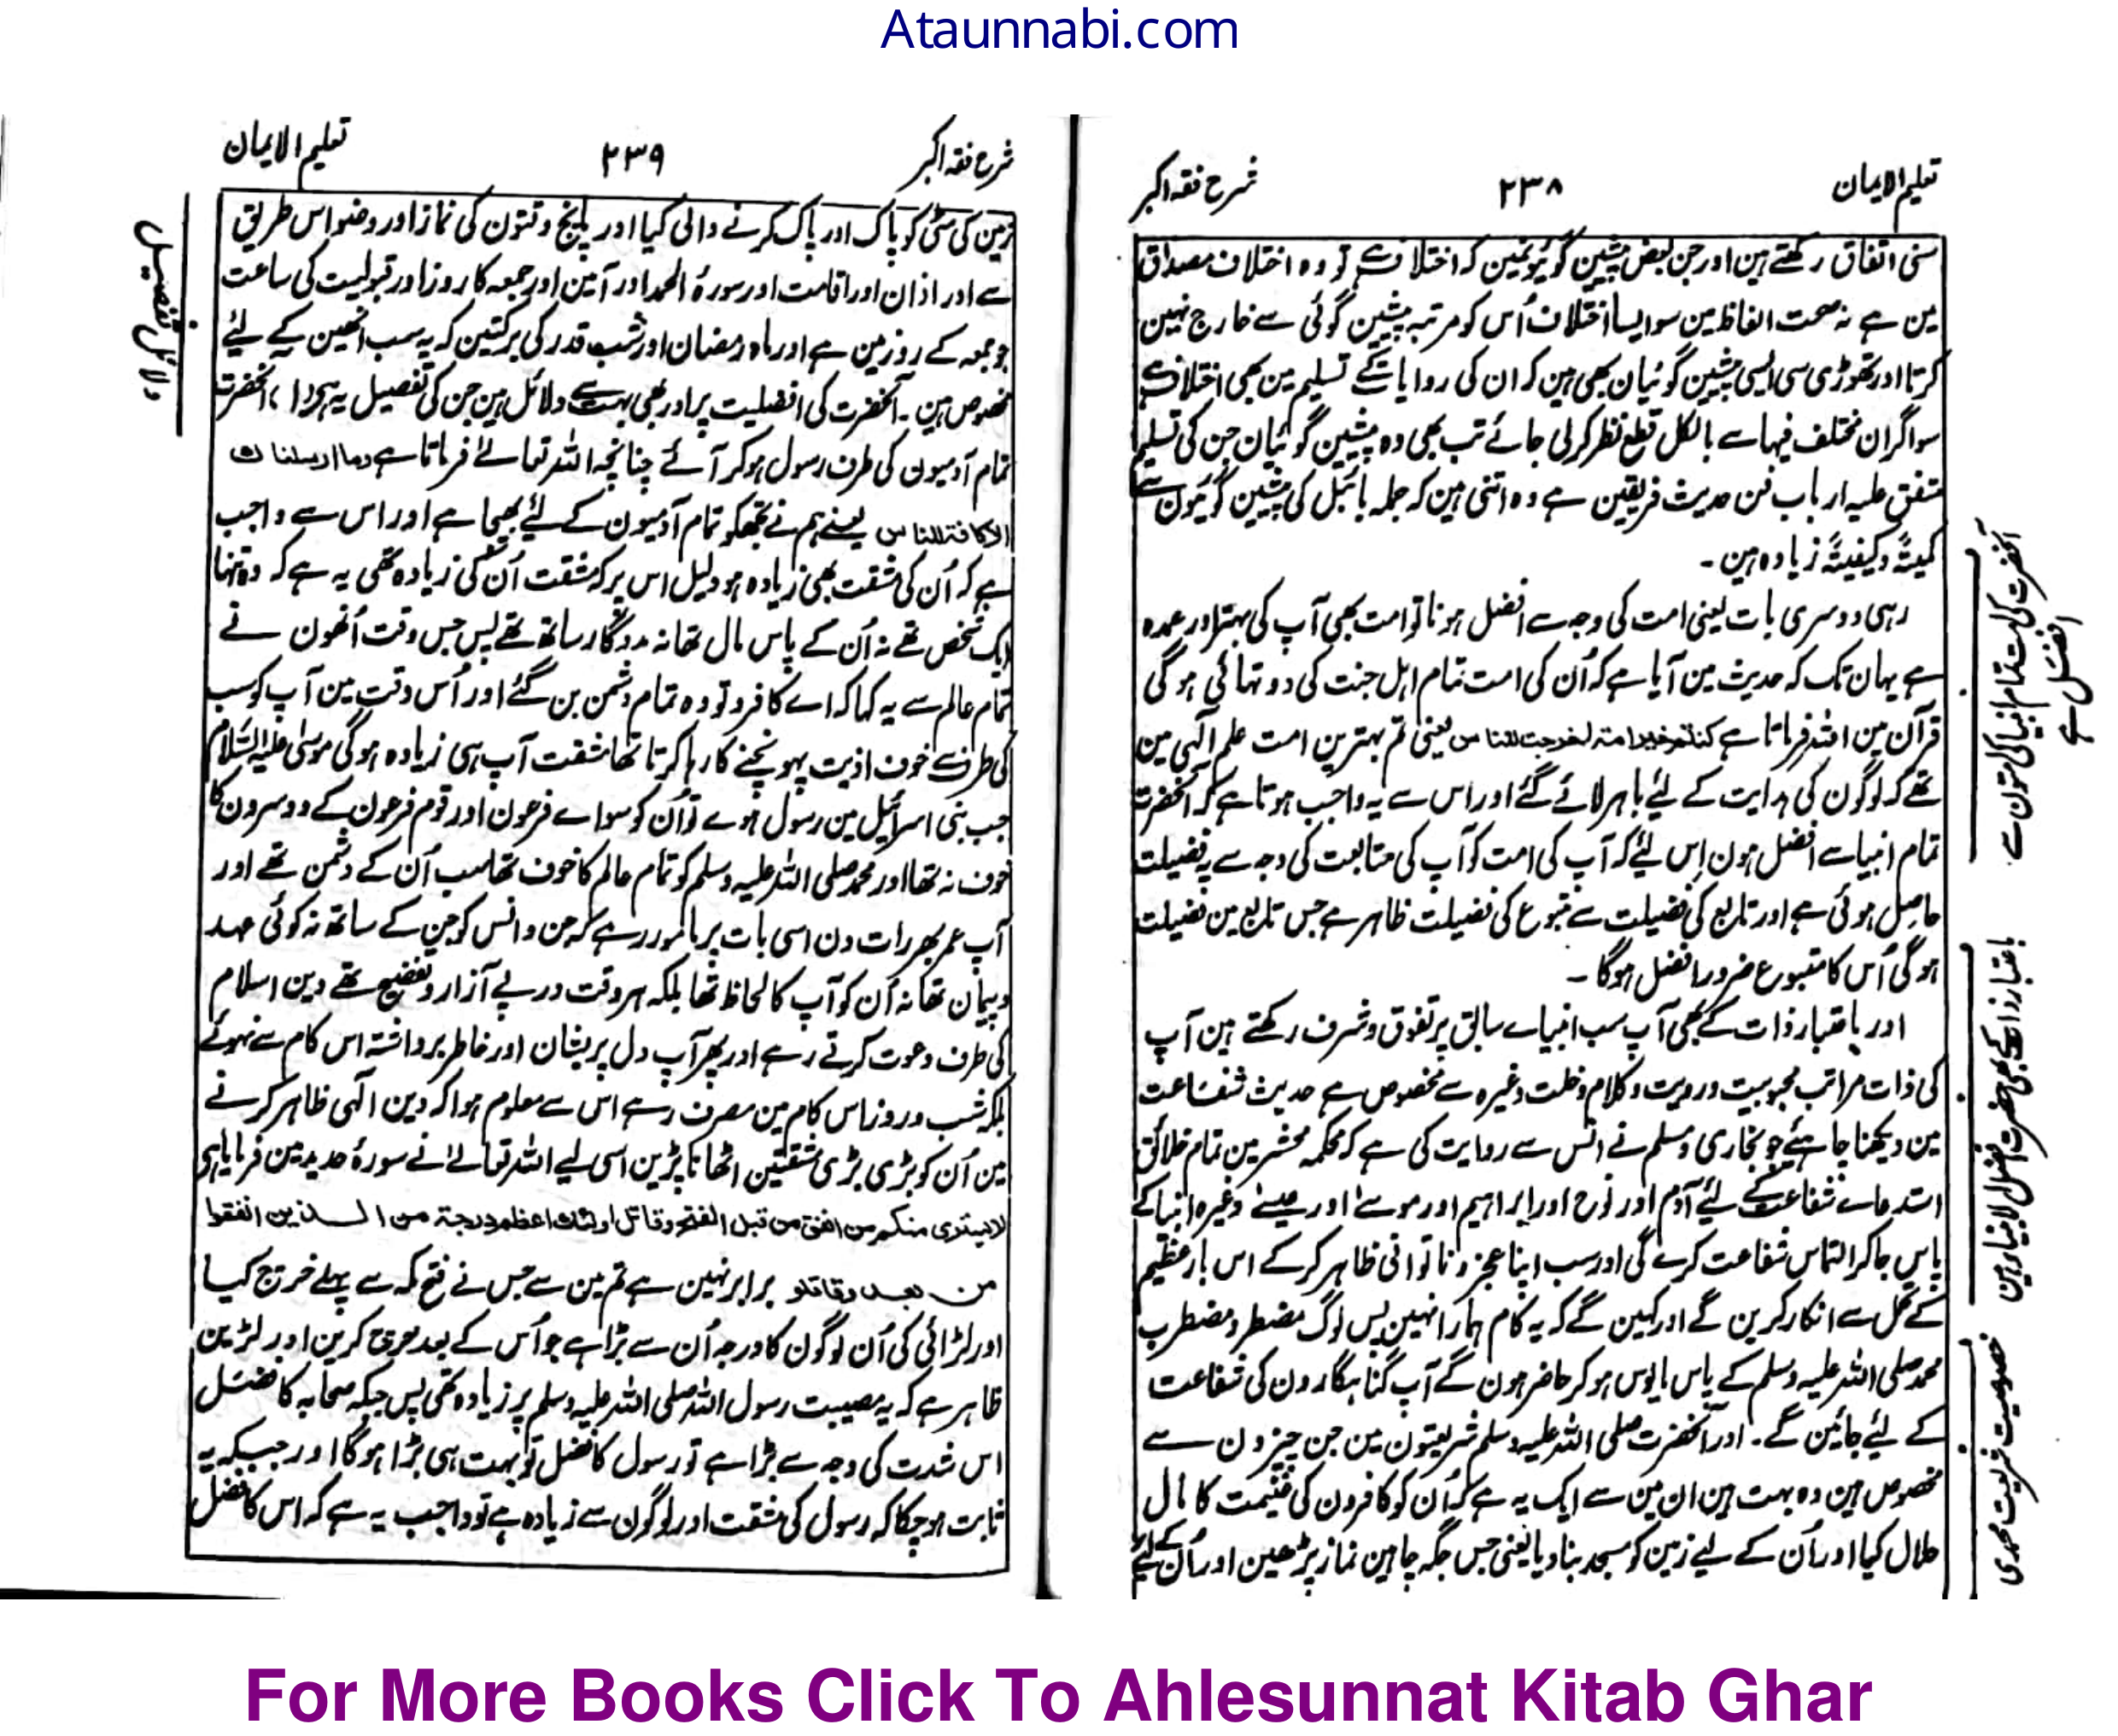 Ataunnabi.com
تعلیم الایمان ۲۳۸ شرح فقہ اکبر
سنی اتفاق رکھتے ہین اور جن بعض پیشین گوئیونمین کہ اختلاف ہے تو وہ اختلاف مصداق
مین ہے نہ صحت الفاظ مین سو ایسا اختلاف اُس کو مرتبہ پیشین گوئی سے خارج نہین
کرتا اور تھوڑی سی ایسی پیشین گوئیان بھی ہین کہ ان کی روایات کے تسلیم مین بھی اختلاف ہے
سو اگر ان مختلف فیہا سے بالکل قطع نظر کرلی جائے تب بھی وہ پیشین گوئیان جن کی تسلیم
متفق علیہ ارباب فن حدیث فریقین ہے وہ اتنی ہین کہ جملہ بائبل کی پیشین گوئیون سے
کمیتہً وکیفیتہً زیادہ ہین۔
رہی دوسری بات یعنی امت کی وجہ سے افضل ہونا تو امت بھی آپ کی بہتر اور عمدہ
ہے یہان تک کہ حدیث مین آیا ہے کہ اُن کی امت تمام اہل جنت کی دو تہائی ہوگی
قرآن مین اللہ فرماتا ہے کنتم خیر امتہ اخرجت للناس یعنی تم بہترین امت علم الٰہی مین
تھے کہ لوگون کی ہدایت کے لیٔے باہر لائے گئے اور اس سے یہ واجب ہوتا ہے کہ آنحضرت
تمام انبیا سے افضل ہون اِس لئے کہ آپ کی امت کو آپ کی متابعت کی وجہ سے یہ فضیلت
حاصل ہوئی ہے اور تابع کی فضیلت سے متبوع کی فضیلت ظاہر ہے جس تابع مین فضیلت
ہوگی اُس کا متبوع ضرور افضل ہوگا۔
اور باعتبار ذات کے بھی آپ سب انبیاے سابق پر تفوق وشرف رکھتے ہین آپ
کی ذات مراتب محبوبیت ورویت وکلام وخلت وغیرہ سے مخصوص ہے حدیث شفاعت
مین دیکھنا چاہئے جو بخاری ومسلم نے انس سے روایت کی ہے کہ محکمہ محشر مین تمام خلائق
استدعاے شفاعت کے لئے آدم اور نوح اور ابراہیم اور موسےٰ اور عیسےٰ وغیرہ انبیا کے
پاس جاکر التماس شفاعت کرے گی اور سب اپنا عجز وناتوانی ظاہر کرکے اس بار عظیم
کے تحمل سے انکار کرین گے اور کہین گے کہ یہ کام ہمارا نہین پس لوگ مضطر ومضطرب
محمد صلی اللہ علیہ وسلم کے پاس مایوس ہوکر حاضر ہون گے آپ گناہگارون کی شفاعت
کے لئے جائین گے۔ اور آنحضرت صلی اللہ علیہ وسلم شریعتون مین جن چیزون سے
مخصوص ہین وہ بہت ہین ان مین سے ایک یہ ہے کہ اُن کو کافرون کی غنیمت کا مال
حلال کیا اور اُن کے لیے زمین کو مسجد بنا دیا یعنی جس جگہ چاہین نماز پڑھین اور اُن کے لئے
آنحضرت کی امت تمام انبیا کی امتون سے
افضل ہے
باعتبار ذات کے بھی حضرت افضل الانبیا ہین
خصوصیت شریعت محمدی
شرح فقہ اکبر ۲۳۹ تعلیم الایمان
زمین کی مٹی کو پاک اور پاک کرنے والی کیا اور پنج وقتون کی نماز اور وضو اس طریق
سے اور اذان اور اقامت اور سورۂ الحمد اور آمین اور جمعہ کا روز اور قبولیت کی ساعت
جو جمعہ کے روز مین ہے اور ماہ رمضان اور شب قدر کی برکتین کہ یہ سب انھین کے لئے
مخصوص ہین۔ آنحضرت کی افضلیت پر اور بھی بہت سے دلائل ہین جن کی تفصیل یہ ہی (۱) آنحضرت
تمام آدمیون کی طرف رسول ہوکر آئے چنانچہ اللہ تعالےٰ فرماتا ہے وما ارسلناك
الاکافتہ للناس یعنے ہم نے تجھکو تمام آدمیون کے لئے بھیجا ہے اور اس سے واجب
ہے کہ اُن کی مشقت بھی زیادہ ہو دلیل اس پر کہ مشقت اُن کی زیادہ تھی یہ ہے کہ وہ تنہا
ایک شخص تھے نہ اُن کے پاس مال تھا نہ مددگار ساتھ تھے پس جس وقت اُنھون نے
تمام عالم سے یہ کہا کہ اے کافرو تو وہ تمام دشمن بن گئے اور اُس وقت مین آپ کو سب
کی طرف سے خوف اذیت پہونچنے کا رہا کرتا تھا مشقت آپ ہی زیادہ ہوگی موسیٰ علیہ السلام
جب بنی اسرائیل مین رسول ہوے تو اُن کو سواے فرعون اور قوم فرعون کے دوسرون کا
خوف نہ تھا اور محمد صلی اللہ علیہ وسلم کو تمام عالم کا خوف تھا سب اُن کے دشمن تھے اور
آپ عمر بھر رات دن اسی بات پر مامور رہے کہ جن وانس کو جن کے ساتھ نہ کوئی عہد
وپیمان تھا نہ اُن کو آپ کا لحاظ تھا بلکہ ہر وقت درپے آزار وتفضیح تھے دین اسلام
کی طرف دعوت کرتے رہے اور پھر آپ دل پریشان اور خاطر برداشتہ اس کام سے نہوئے
بلکہ شب وروز اس کام مین مصرف رہے اس سے معلوم ہوا کہ دین الٰہی ظاہر کرنے
مین اُن کو بڑی بڑی مشقتین اٹھانا پڑین اسی لیے اللہ تعالےٰ نے سورۂ حدید مین فرمایا ہی
لایستوی منکم من انفق من قبل الفتح وقاتل اولئك اعظم درجتہ من الذین انفقوا
من بعد وقاتلو برابر نہین ہے تم مین سے جس نے فتح مکہ سے پہلے خرچ کیا
اور لڑائی کی اُن لوگون کا درجہ اُن سے بڑا ہے جو اُس کے بعد خرچ کرین اور لڑین
ظاہر ہے کہ یہ مصیبت رسول اللہ صلی اللہ علیہ وسلم پر زیادہ تھی پس جبکہ صحابہ کا فضل
اس شدت کی وجہ سے بڑا ہے تو رسول کا فضل تو بہت ہی بڑا ہوگا اور جبکہ یہ
ثابت ہوچکا کہ رسول کی مشقت اور لوگون سے زیادہ ہے تو واجب یہ ہے کہ اس کا فضل
دلائل تفصیل
For More Books Click To Ahlesunnat Kitab Ghar